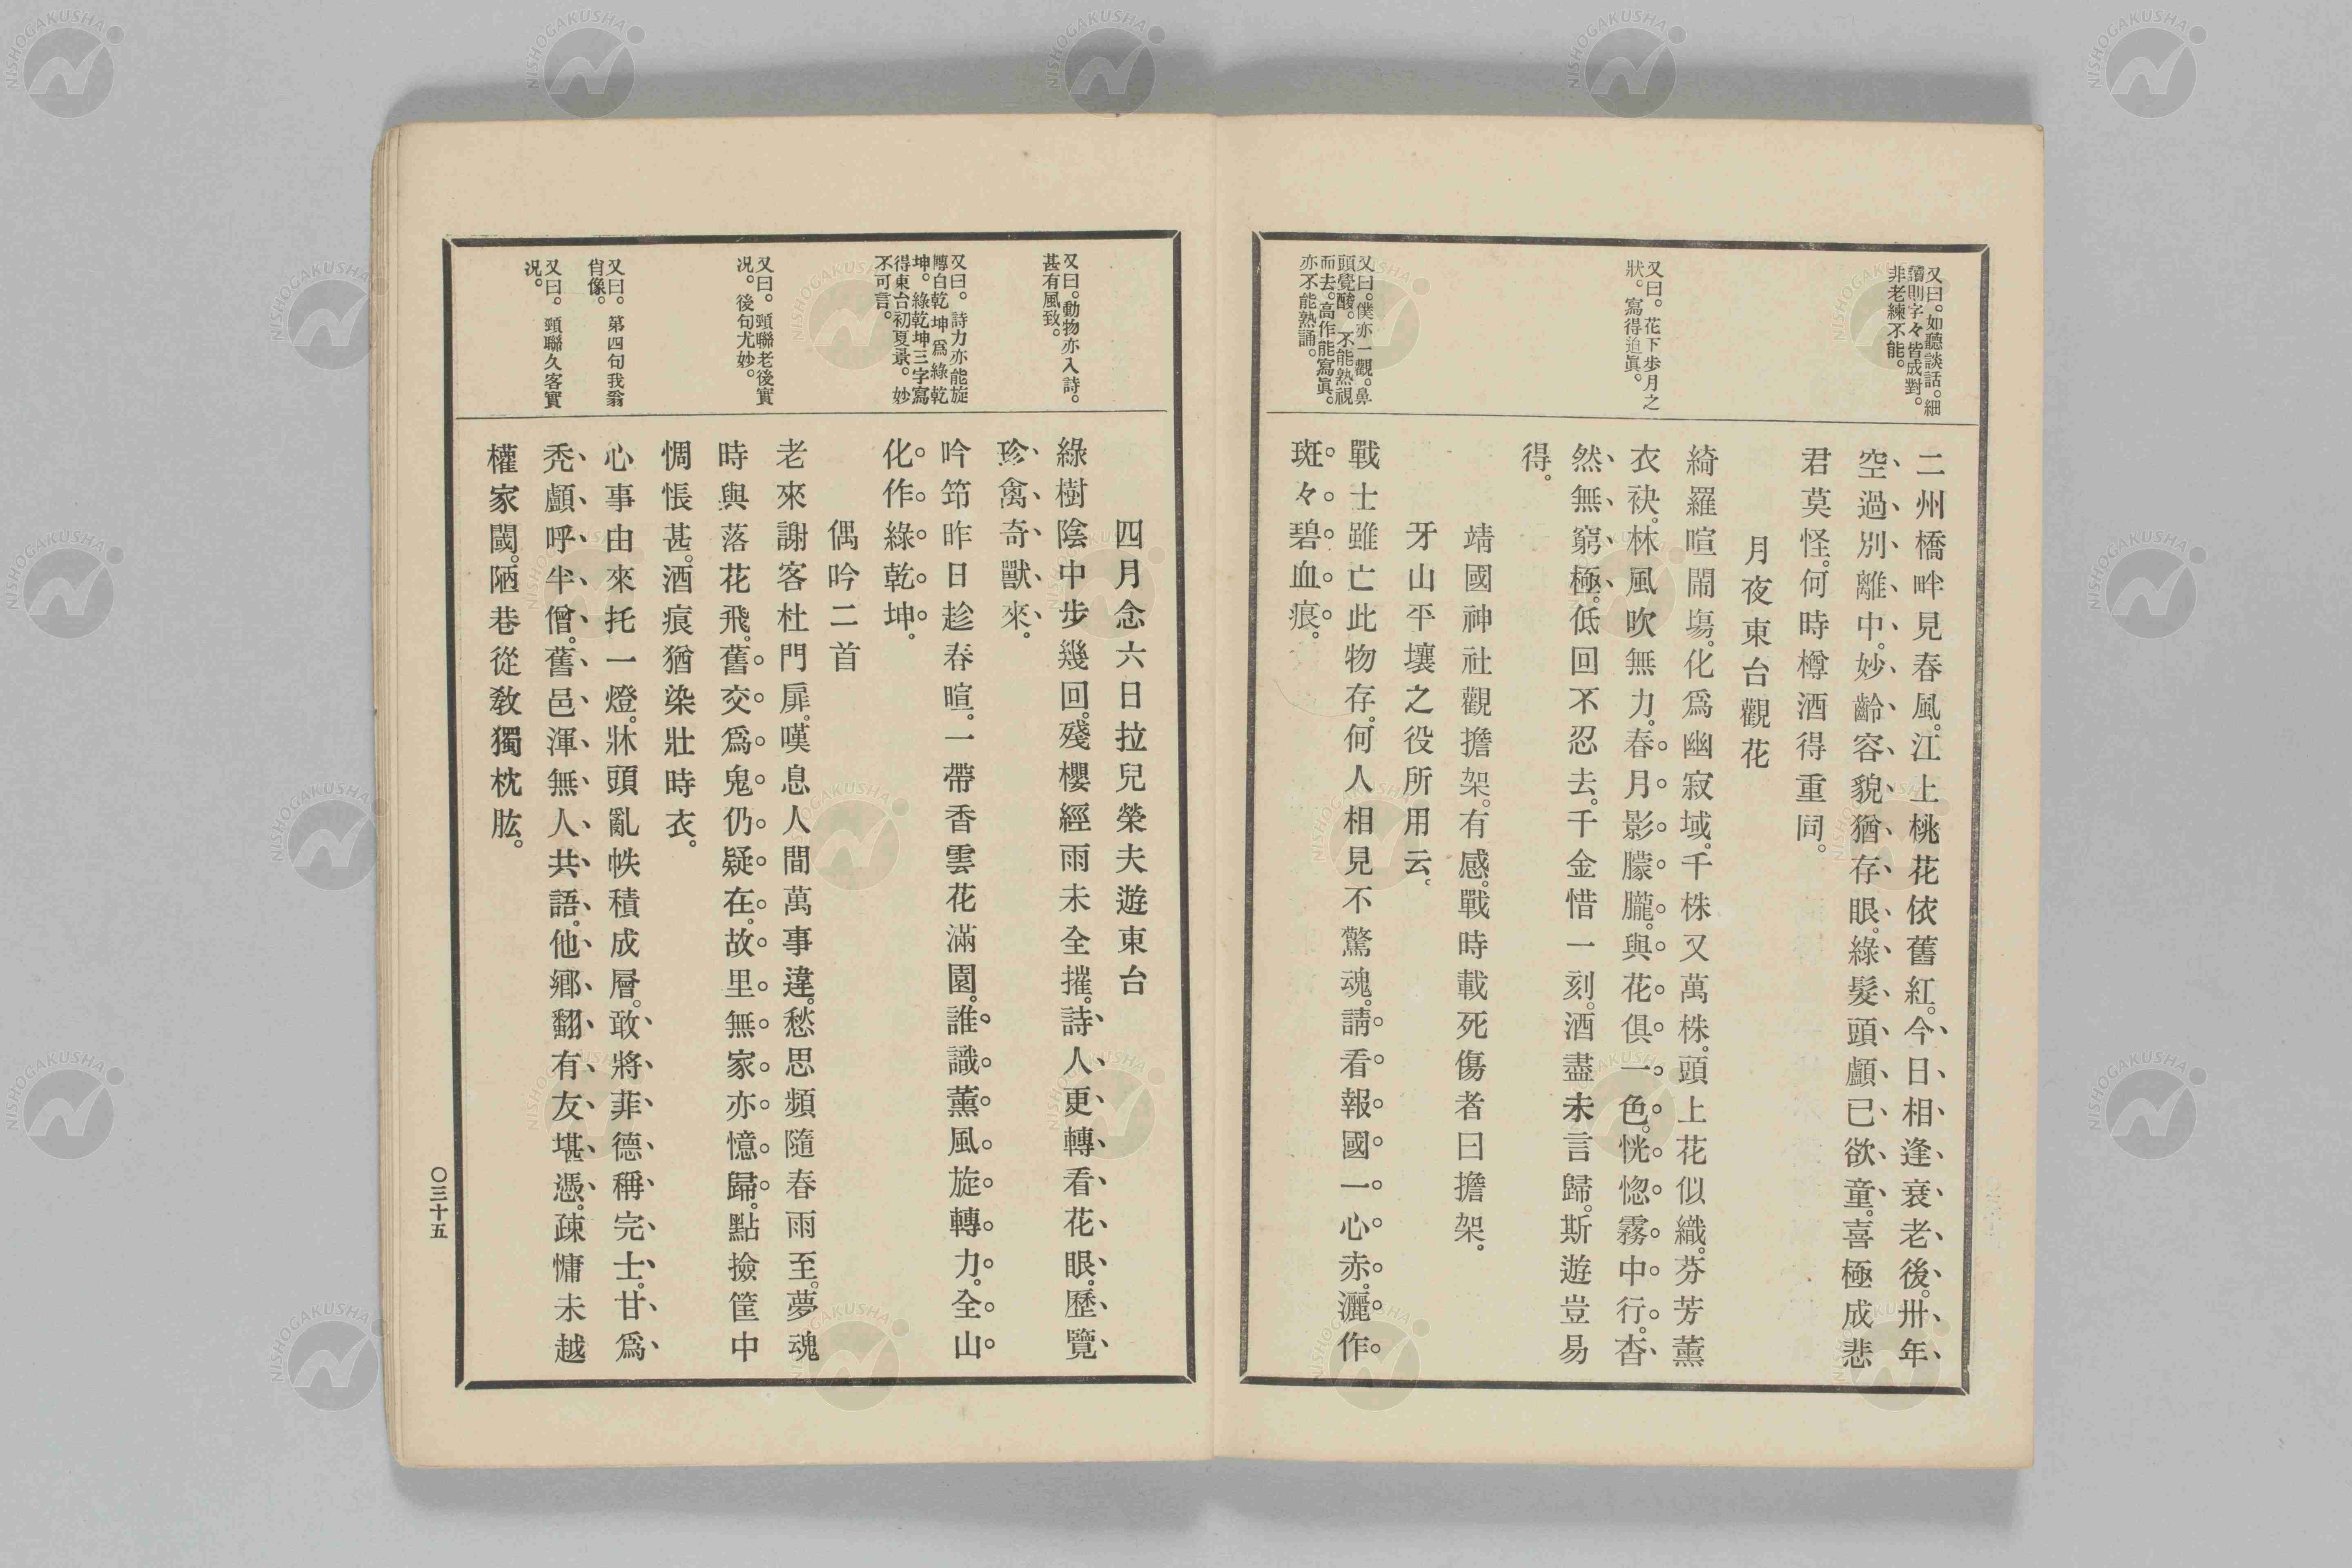 又曰。如聽談話。細
讀則字々皆成對。
非老練不能。
二州橋畔見春風。江上桃花依舊紅。今日相逢衰老後。卅年
空過別離中。妙齡容貌猶存眼。綠髮頭顱已欲童。喜極成悲
君莫怪。何時樽酒得重同。
月夜東台觀花
又曰。花下步月之
狀。寫得迫眞。
綺羅喧鬧塲。化爲幽寂域。千株又萬株。頭上花似織。芬芳薰
衣袂。林風吹無力。春月影朦朧。與花俱一色。恍惚霧中行。杳
然無窮極。低回不忍去。千金惜一刻。酒盡未言歸。斯遊豈易
得。
靖國神社觀擔架。有感。戰時載死傷者曰擔架。
牙山平壤之役所用云。
又曰。僕亦一觀。鼻
頭覺酸。不能熟視
而去。高作能寫眞。
亦不能熟誦。
戰士雖亡此物存。何人相見不驚魂。請看報國一心赤。灑作
斑々碧血痕。
四月念六日拉兒榮夫遊東台
又曰。動物亦入詩。
甚有風致。
綠樹陰中步幾回。殘櫻經雨未全摧。詩人更轉看花眼。歷覽
珍禽奇獸來。
又曰。詩力亦能旋
轉白乾坤爲綠乾
坤。綠乾坤三字寫
得東台初夏景。妙
不可言。
吟筇昨日趁春暄。一帶香雲花滿園。誰識薰風旋轉力。全山
化作綠乾坤。
偶吟二首
又曰。頸聯老後實
况。後句尤妙。
老來謝客杜門扉。嘆息人間萬事違。愁思頻隨春雨至。夢魂
時與落花飛。舊交爲鬼仍疑在。故里無家亦憶歸。點撿筐中
惆悵甚。酒痕猶染壯時衣。
又曰。第四句我翁
肖像。
又曰。頸聯久客實
况。
心事由來托一燈。牀頭亂帙積成層。敢將菲德稱完士。甘爲
禿顱呼半僧。舊邑渾無人共語。他鄉翻有友堪憑。疎慵未越
權家閾。陋巷從教獨枕肱。
〇三十五